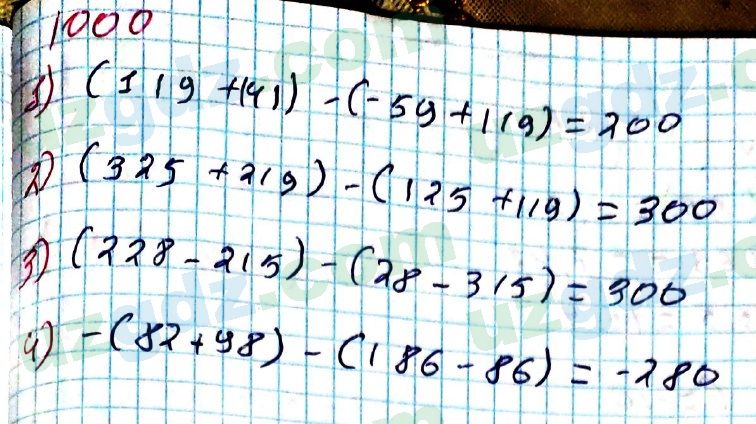 1000
1) (119 + 141) - (-59 + 119) = 200
2) (325 + 219) - (125 + 119) = 300
3) (228 - 215) - (28 - 315) = 300
4) -(82 + 98) - (186 - 86) = -280